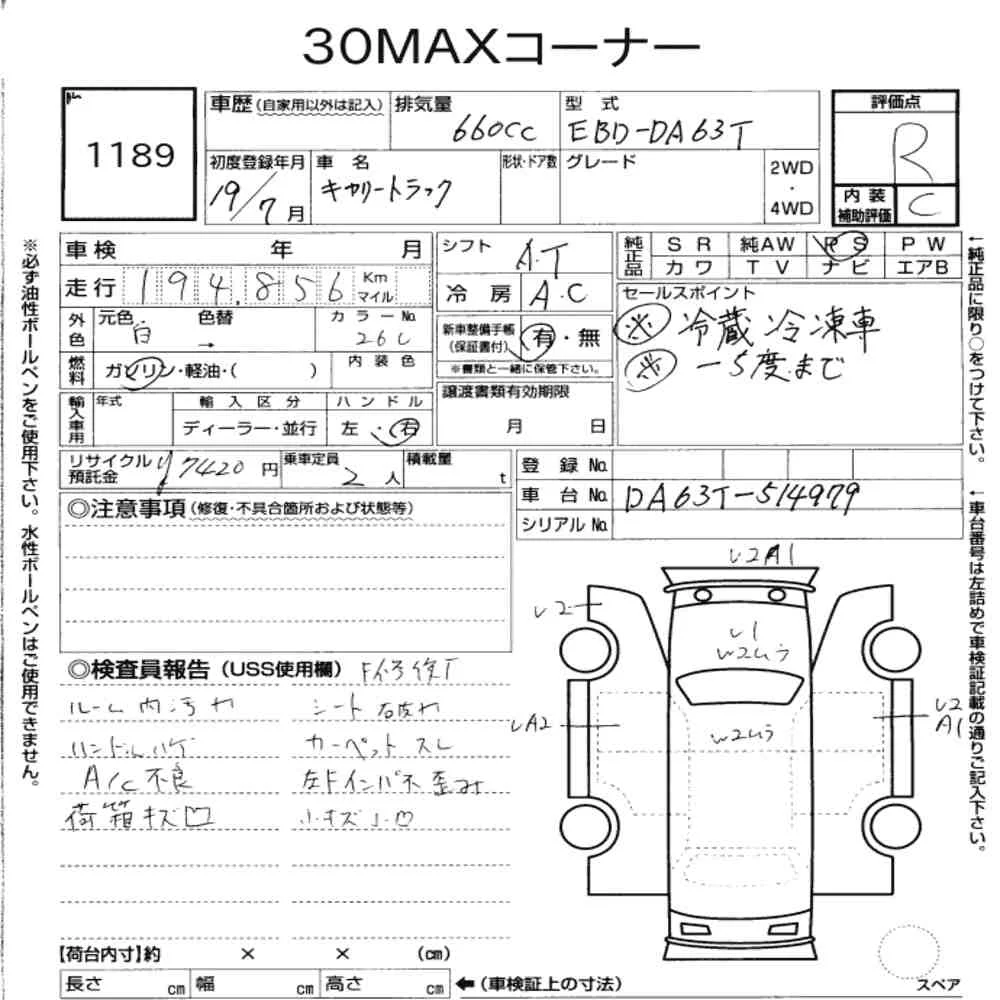 30MAXコーナー
1189
車歴(自家用以外は記入)
排気量
660cc
型式
EBD-DA63T
評価点
R
初度登録年月
19/7月
車名
キャリートラック
形状・ドア数
グレード
2WD
・
4WD
内装
補助評価
C
車検 年 月
シフト
A.T
純正品
SR 純AW PS PW
カワ TV ナビ エアB
走行 194,856 Km
マイル
冷房 A.C
セールスポイント
※ 冷蔵冷凍車
※ -5度まで
外色
元色 白 色替 →
カラーNo.
26U
新車整備手帳
(保証書付)
有・無
※書類と一緒に保管下さい。
燃料
ガソリン・軽油・( )
内装色
輸入車用
年式
輸入区分
ディーラー・並行
ハンドル
左・右
譲渡書類有効期限
月 日
リサイクル
預託金
¥7420円
乗車定員
2人
積載量
t
登録No.
車台No. DA63T-514979
シリアルNo.
◎注意事項(修復・不具合箇所および状態等)
◎検査員報告(USS使用欄) F修復T
ルーム内汚れ シート破れ
ハンドルハゲ カーペットスレ
A/C不良 左Fインパネ歪み
荷箱キズ凹 小キズ小凹
U2A1
U2
U1
W2ムラ
UA2
W2ムラ
U2
A1
【荷台内寸】約 × × (cm)
長さ cm 幅 cm 高さ cm ←(車検証上の寸法)
スペア
※必ず油性ボールペンをご使用下さい。水性ボールペンはご使用できません。
←純正品に限り○をつけて下さい。
←車台番号は左詰めで車検証記載の通りご記入下さい。